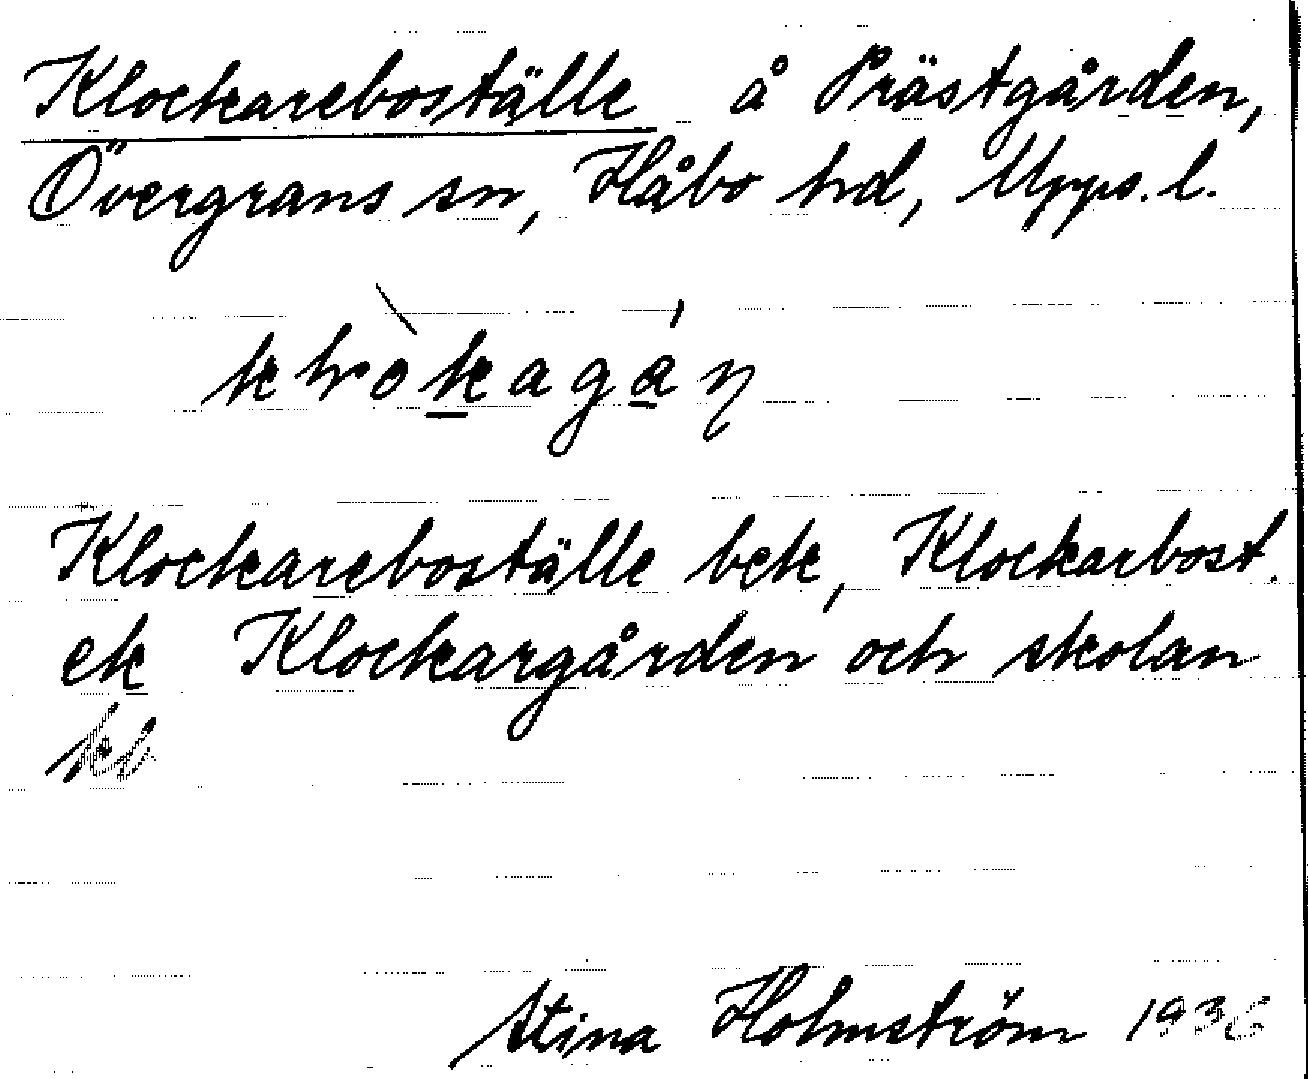 Klockareboställe å Prästgården,
Övergrans sn, Håbo hd, Upps. l.
Klockareboställe bek, Klockarbost.
ek Klockargården och skolan
Stina Holmström 1936